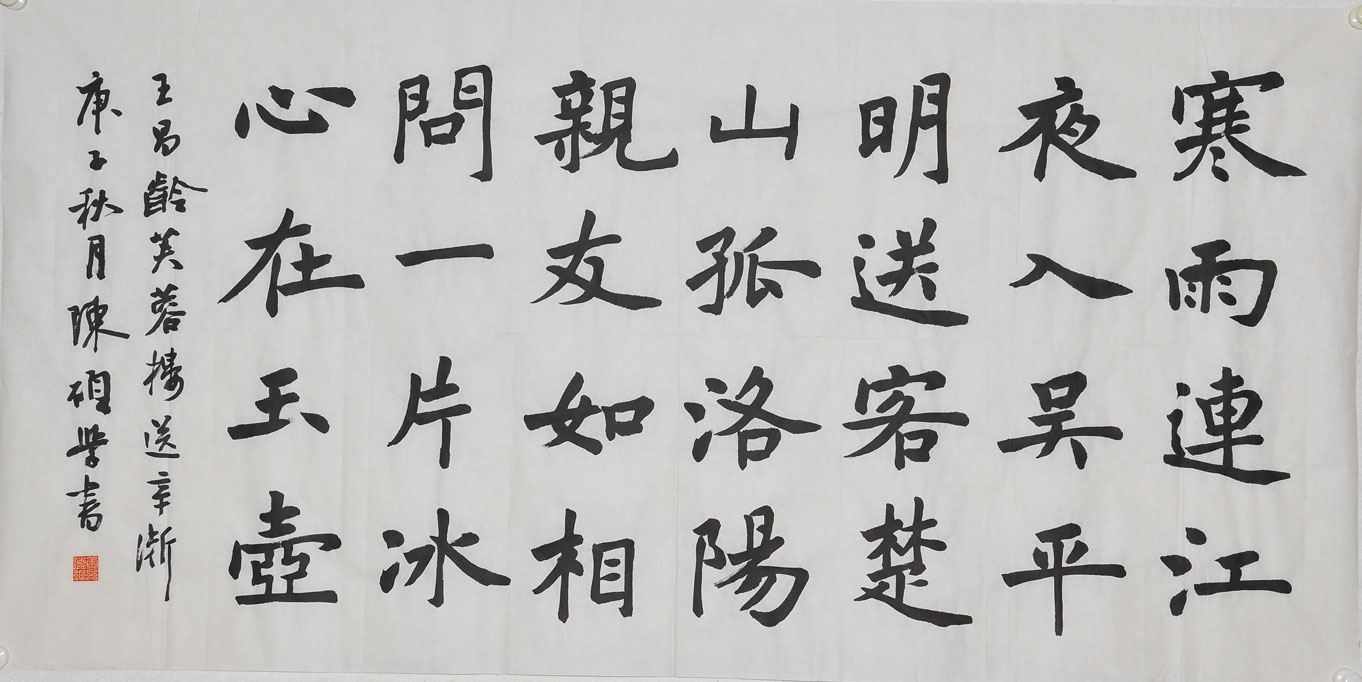 寒雨連江
夜入吴平
明送客楚
山孤洛陽
親友如相
問一片冰
心在玉壺
王昌齡芙蓉樓送辛漸
庚子秋月陳碩學書